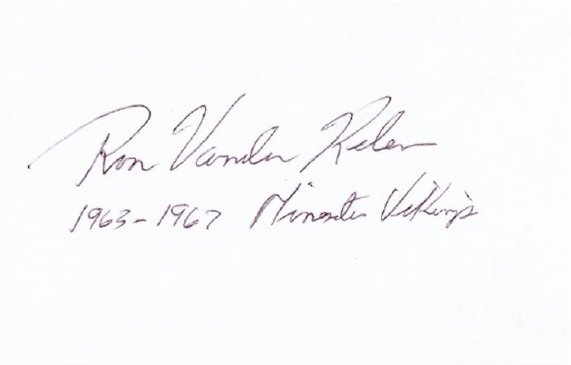 Ron Vander Kelen
1963-1967 Minnesota Vikings